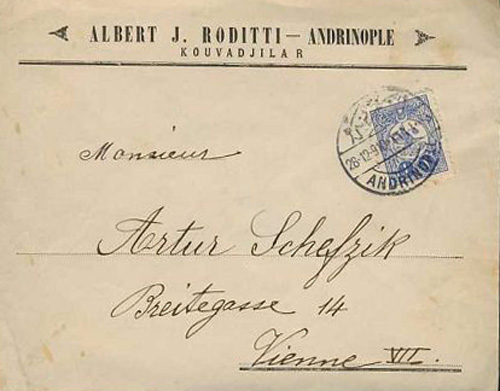 ALBERT J. RODITTI — ANDRINOPLE
KOUVADJILAR
28-12-9
ANDRINOPLE
Monsieur
Artur Schefzik
Breitegasse 14
Vienne VII.